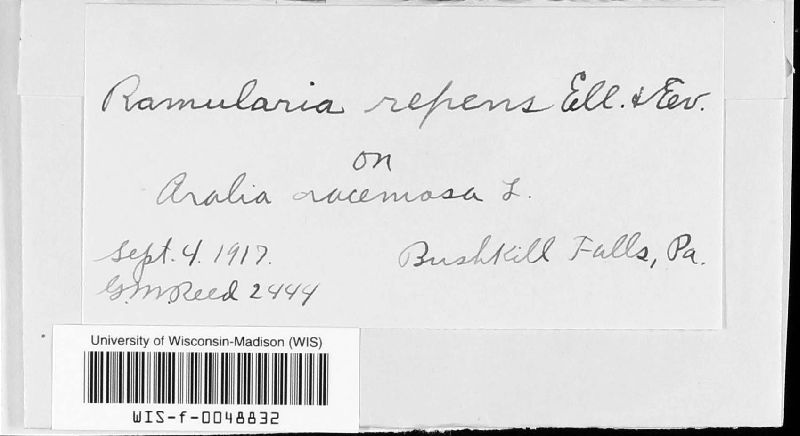 Ramularia repens Ell. & Eev.
on
Aralia racemosa L.
Sept. 4. 1917. Bushkill Falls, Pa.
G.M. Reed 2444
University of Wisconsin-Madison (WIS)
WIS-f-0048832